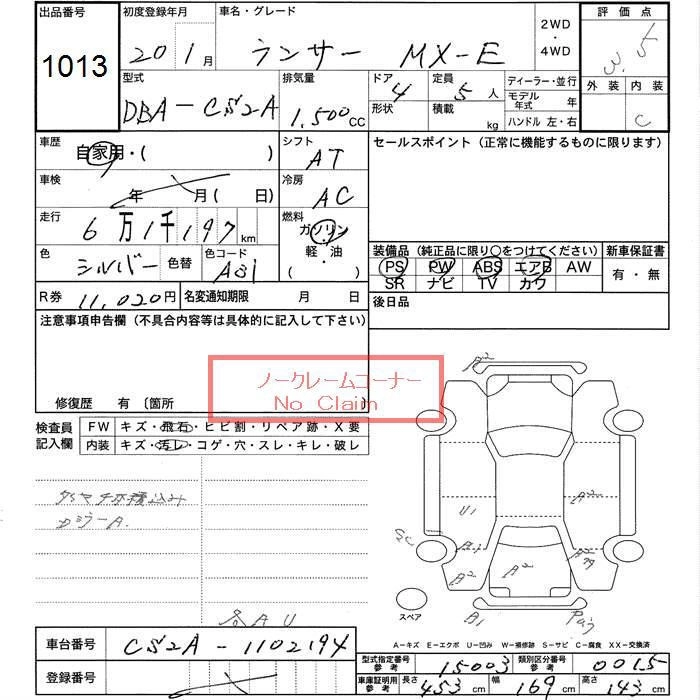 出品番号
1013
初度登録年月
20 1月
車名・グレード
ランサー MX-E
2WD
・
4WD
評価点
3.5
外装 内装
C
型式
DBA-CS2A
排気量
1,500CC
ドア 4
形状
定員 5人
積載 kg
ディーラー・並行
モデル年式 年
ハンドル 左・右
車歴
自家用・( )
シフト
AT
車検
年 月( 日)
冷房
AC
走行
6万1千197km
燃料
ガソリン
軽・油
・( )
色
シルバー
色替
色コード
A31
R券 11,020円
名変通知期限 月 日
セールスポイント(正常に機能するものに限ります)
装備品(純正品に限り○をつけてください)
PS PW ABS エアB AW
SR ナビ TV カワ
新車保証書
有・無
後日品
注意事項申告欄(不具合内容等は具体的に記入して下さい)
ノークレームコーナー
No Claim
修復歴 有 〔箇所 〕
検査員記入欄
FW キズ・飛石・ヒビ割・リペア跡・X要
内装 キズ・汚レ・コゲ・穴・スレ・キレ・破レ
DミラーA.
各AU
A2
U1
A2
SC
B1
A2
A2
A2
B1
スペア
A-キズ E-エクボ U-凹み W-補修跡 S-サビ C-腐食 XX-交換済
車台番号 CS2A-1102194
登録番号
型式指定番号 参考 15003
類別区分番号 参考 0015
車庫証明用 参考 長さ 453cm 幅 169cm 高さ 143cm